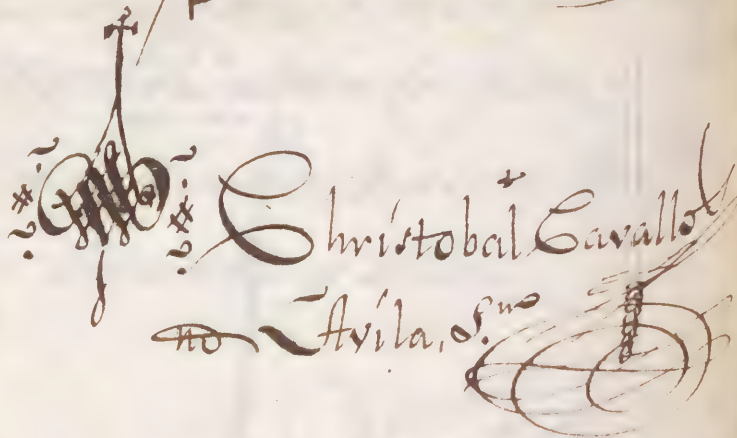 Christobal Cavallo
no Avila, S.no